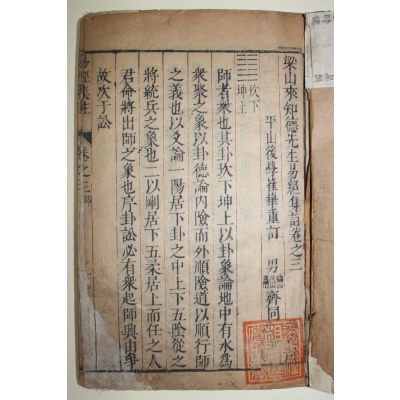 梁山來知德先生易經集註卷之三
平山後學崔華重訂 男 齊同
坎下
坤上
師者衆也其卦坎下坤上以卦象論地中有水爲
衆聚之象以卦德論内險而外順險道以順行師
之義也以爻論一陽居下卦之中上下五陰從之
將統兵之象也二以剛居下五柔居上而任之人
君命將出師之象也序卦訟必有衆起師興由爭
故次于訟
易經集註 卷之三 師